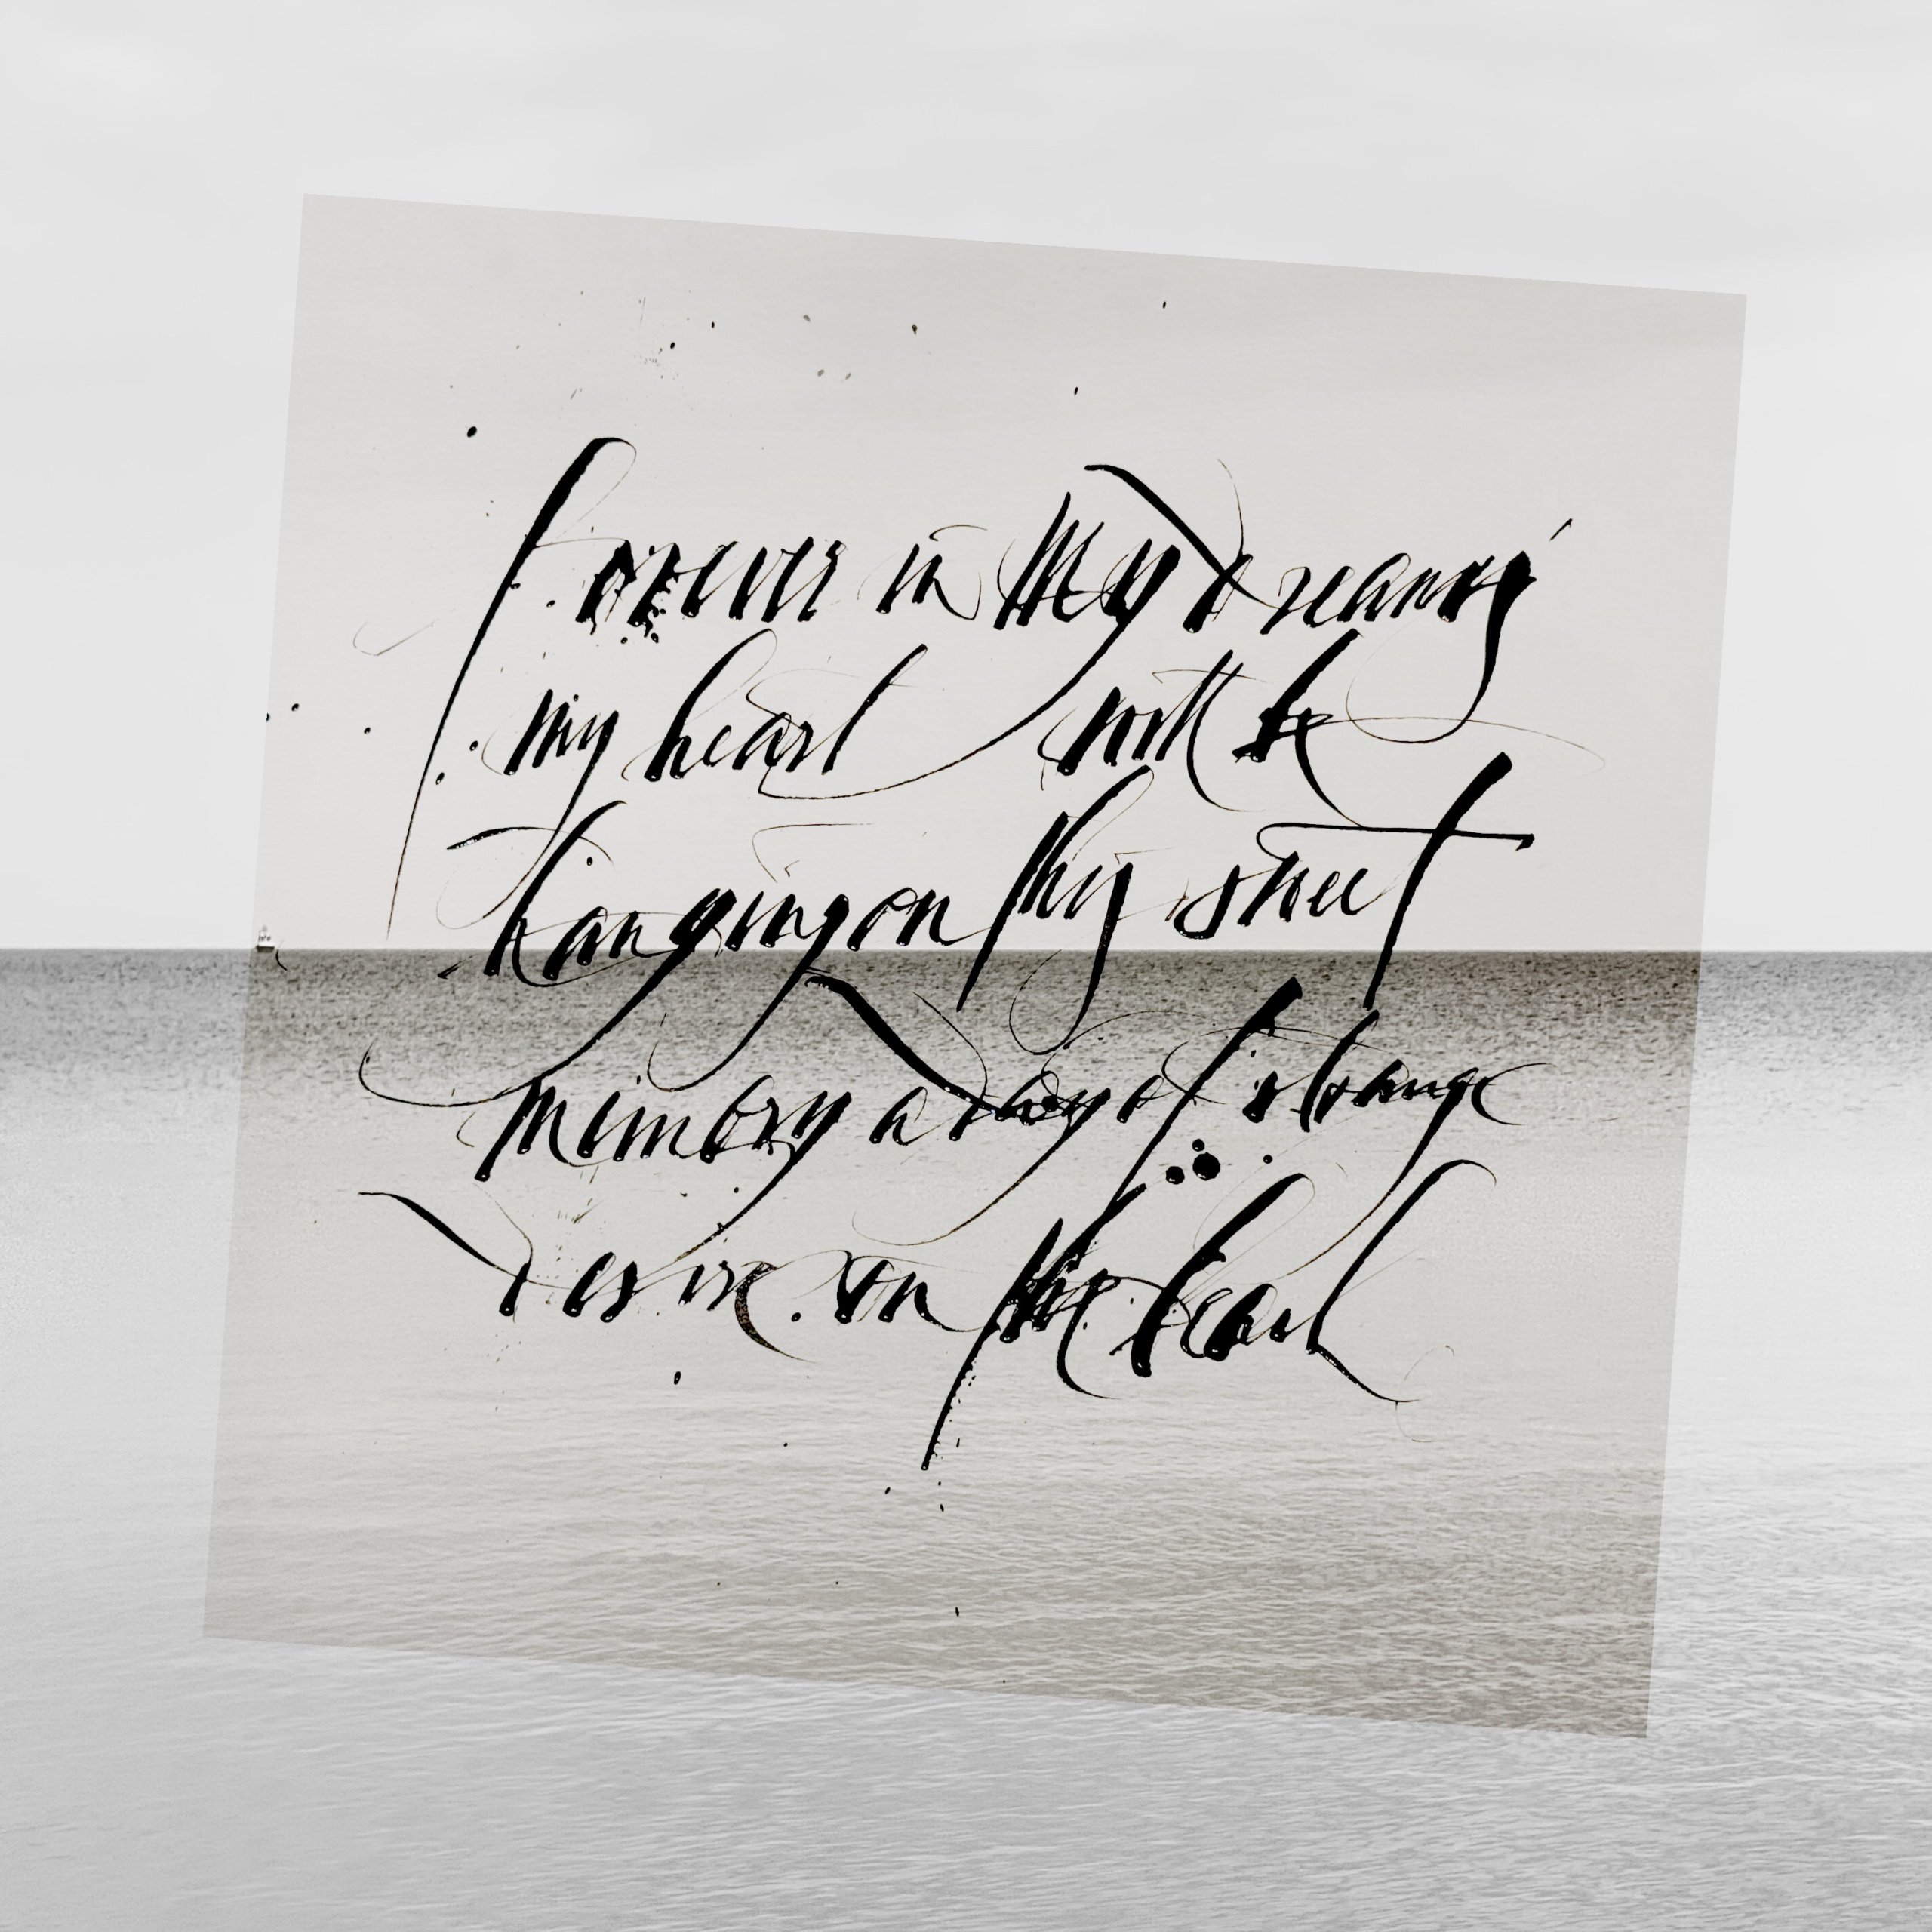 Forever in my dreams
my heart will be
hanging on thy sweet
memory a day of strange
desire. on the beach